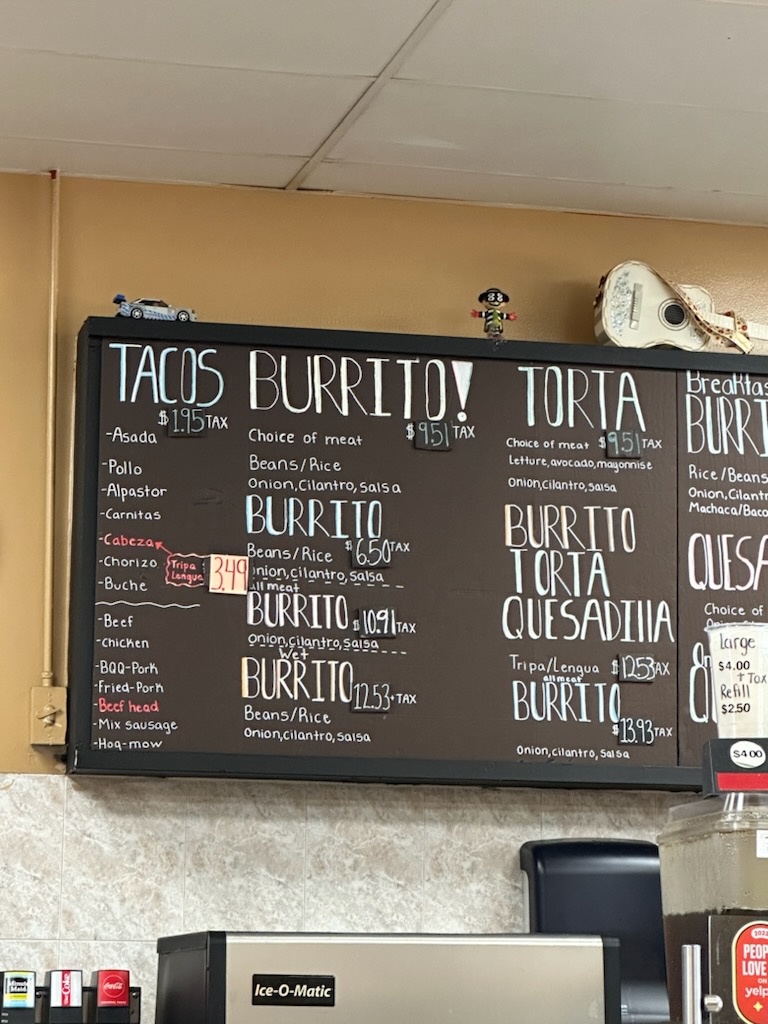 TACOS
$1.95 TAX
-Asada
-Pollo
-Alpastor
-Carnitas
-Cabeza
-Chorizo
-Buche
Tripa
Lengua
3.49
-Beef
-chicken
-BQQ-Pork
-Fried-Pork
-Beef head
-Mix sausage
-Hog-mow
BURRITO!
$9.51 TAX
Choice of meat
Beans/Rice
Onion,cilantro,salsa
BURRITO
Beans/Rice $6.50 TAX
Onion,cilantro,salsa
all meat
BURRITO $10.91 TAX
Onion,cilantro,salsa
Wet
BURRITO 12.53+TAX
Beans/Rice
Onion,cilantro,salsa
TORTA
Choice of meat $9.51 TAX
Letture,avocado,mayonnise
Onion,cilantro,salsa
BURRITO
TORTA
QUESADIllA
Tripa/Lengua $12.53 TAX
all meat
BURRITO
$13.93 TAX
Onion,cilantro,salsa
Breakfas
BURRI
Rice/Beans
Onion,Cilantr
Machaca/Baco
QUESA
Choice of
Large
$4.00
+ Tax
Refill
$2.50
$4.00
Ice-O-Matic
Minute Maid
Coke
Coca-Cola
PEOP
LOVE
ON
yelp